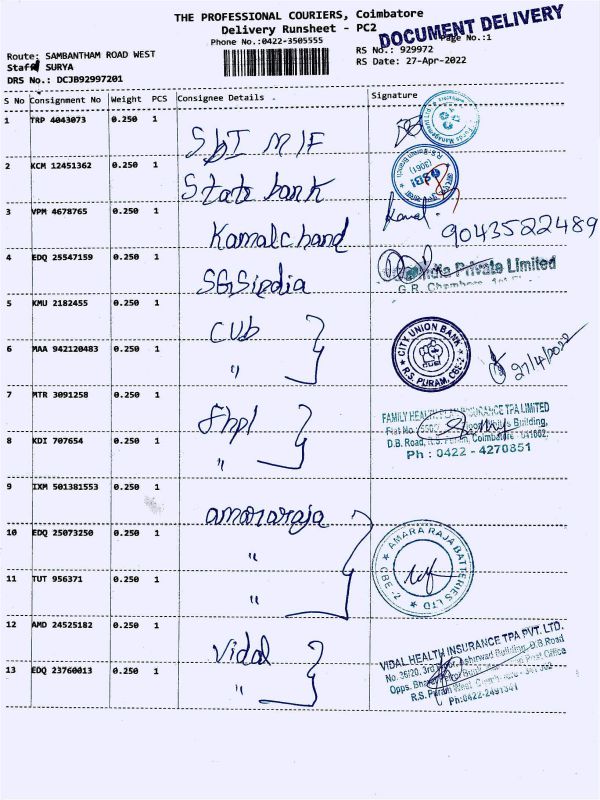 THE PROFESSIONAL COURIERS, Coimbatore
Delivery Runsheet - PC2
DOCUMENT DELIVERY
Phone No.:0422-3505555
Page No.:1
Route: SAMBANTHAM ROAD WEST
RS No.: 929972
Staff SURYA
RS Date: 27-Apr-2022
DRS No.: DCJB92997201
S No Consignment No Weight PCS Consignee Details . Signature
1 TRP 4043073 0.250 1 SbI MIF
2 KCM 12451362 0.250 1 State bank
(3061)
SBI
3 VPM 4678765 0.250 1 Kamalchand Kamal. 9043522489
4 EDQ 25547159 0.250 1 SGSindia India Private Limited
G.R. Chambers
5 KMU 2182455 0.250 1 CUb
6 MAA 942120483 0.250 1 "
CITY UNION BANK
CUB
R.S. PURAM, CBE-2
27/4/2022
7 MTR 3091258 0.250 1 fhpl
8 KDI 707654 0.250 1 "
FAMILY HEALTH PLAN INSURANCE TPA LIMITED
Flat No. Building,
D.B. Road, R.S. Puram, Coimbatore - 641002,
Ph : 0422 - 4270851
9 IXM 501381553 0.250 1 amararaja
10 EDQ 25073250 0.250 1 "
11 TUT 956371 0.250 1 "
AMARA RAJA BATTERIES LTD
CBE-2
12 AMD 24525182 0.250 1 Vidal
13 EDQ 23760013 0.250 1 "
VIDAL HEALTH INSURANCE TPA PVT. LTD.
No. 36/20, 3rd Floor, Ashirwad Building, D.B.Road
Opps. Post Office
R.S. Puram West, Coimbatore
Ph:0422-2491341